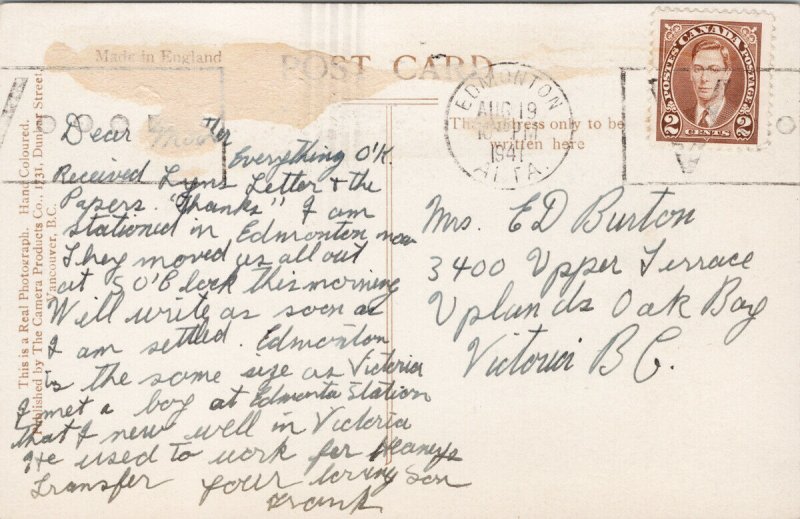 Made in England
POST CARD
The Address only to be
written here
EDMONTON
AUG 19
PM
1941
ALTA.
POSTES CANADA POSTAGE
2 CENTS 2
This is a Real Photograph. Hand Coloured.
Published by The Camera Products Co., 1731, Dunbar Street,
Vancouver, B.C.
Dear Mother
Everything O'K.
Received Lyns Letter & the
Papers. "Thanks" I am
stationed in Edmonton now
They moved us all out
at 5 O'Clock this morning
Will write as soon as
I am settled. Edmonton
is the same size as Victoria
I met a boy at Edmonta Station
that I new well in Victoria
He used to work for Heaneys
Transfer your loving Son
Frank
Mrs. ED Burton
3400 Upper Terrace
Uplands Oak Bay
Victoria B C.